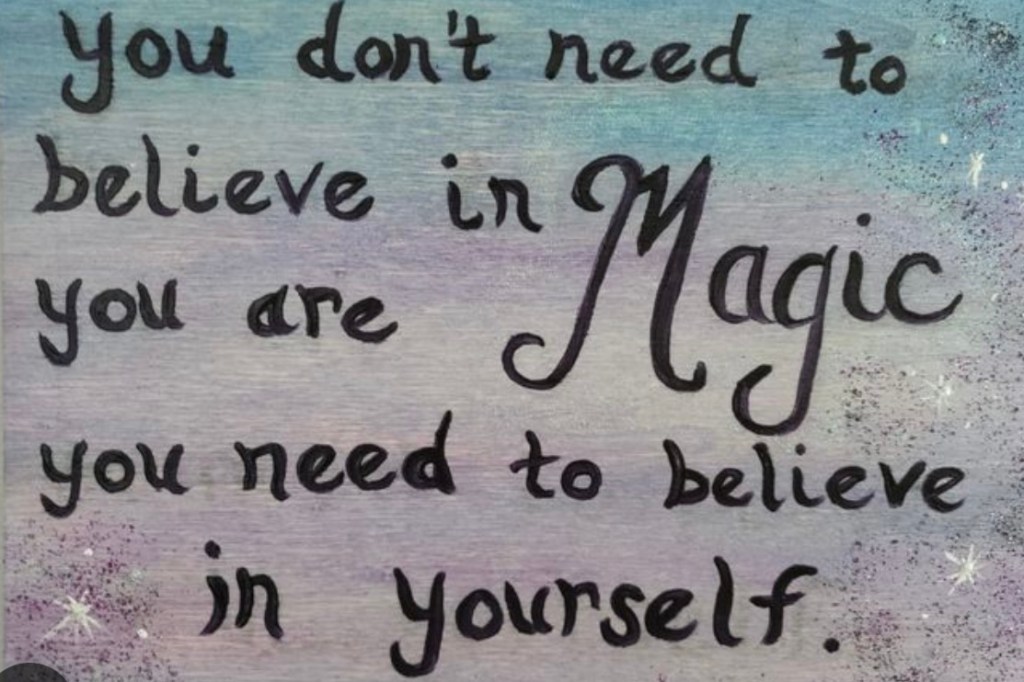 you don't need to
believe in Magic
you are
you need to believe
in yourself.